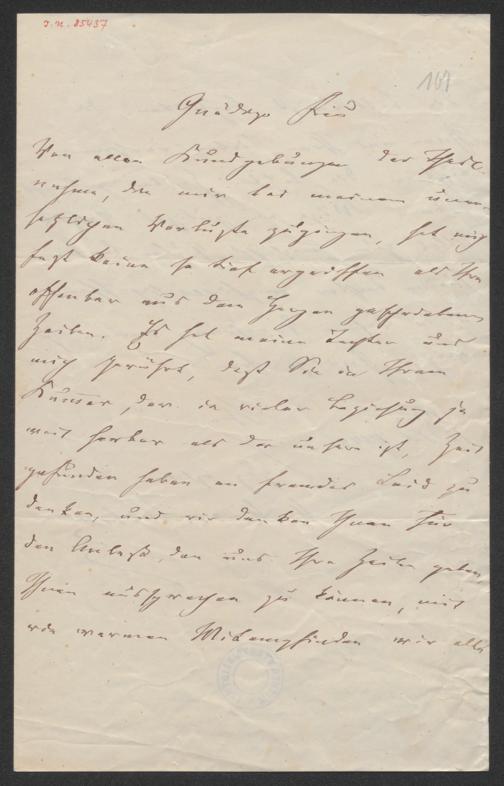 I.N. 85437
107
Gnädige Frau
Von allen Kundgebungen der Theil-
nahme, die mir bei meinem uner-
setzlichen Verluste zugingen, hat mich
fast keine so tief ergriffen als Ihre
offenbar aus dem Herzen geschriebenen
Zeilen. Es hat meine Tochter und
mich gerührt, daß Sie in Ihrem
Kummer, der in vieler Beziehung ja
weit herber als der unsere ist, Zeit
gefunden haben an fremdes Leid zu
denken, und wir danken Ihnen für
den Anlaß, den uns Ihre Zeilen geben
Ihnen aussprechen zu können, mit
wie warmem Mitempfinden wir alle